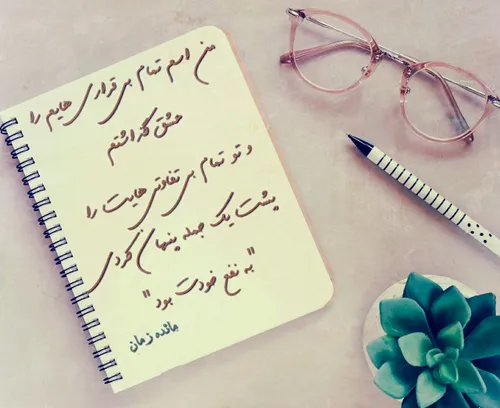 من اسم تمام بی قراری هایم را
عشق گذاشتم
و تو تمام بی تفاوتی هایت را
پشت یک جمله پنهان کردی
"به نفع خودت بود"
مائده زمان